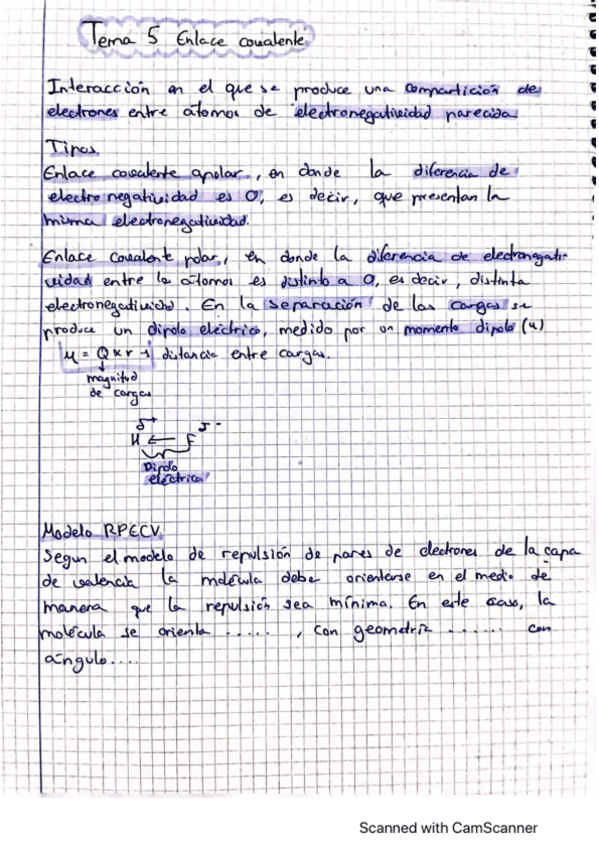 Tema 5 Enlace covalente
Interacción en el que se produce una compartición de
electrones entre átomos de electronegatividad parecida
Tipos.
Enlace covalente apolar, en donde la diferencia de
electronegatividad es 0, es decir, que presentan la
misma electronegatividad.
Enlace covalente polar, en donde la diferencia de electronegati-
vidad entre los átomos es distinto a 0, es decir, distinta
electronegatividad. En la separación de las cargas se
produce un dipolo eléctrico, medido por un momento dipolo (u)
u = Q x r → distancia entre cargas.
magnitud
de cargas
δ+ δ-
H ← F
Dipolo
eléctrico
Modelo RPECV.
Segun el modelo de repulsión de pares de electrones de la capa
de valencia la molécula debe orientarse en el medio de
manera que la repulsión sea mínima. En este caso, la
molécula se orienta ....., con geometría ...... con
ángulo....
Scanned with CamScanner